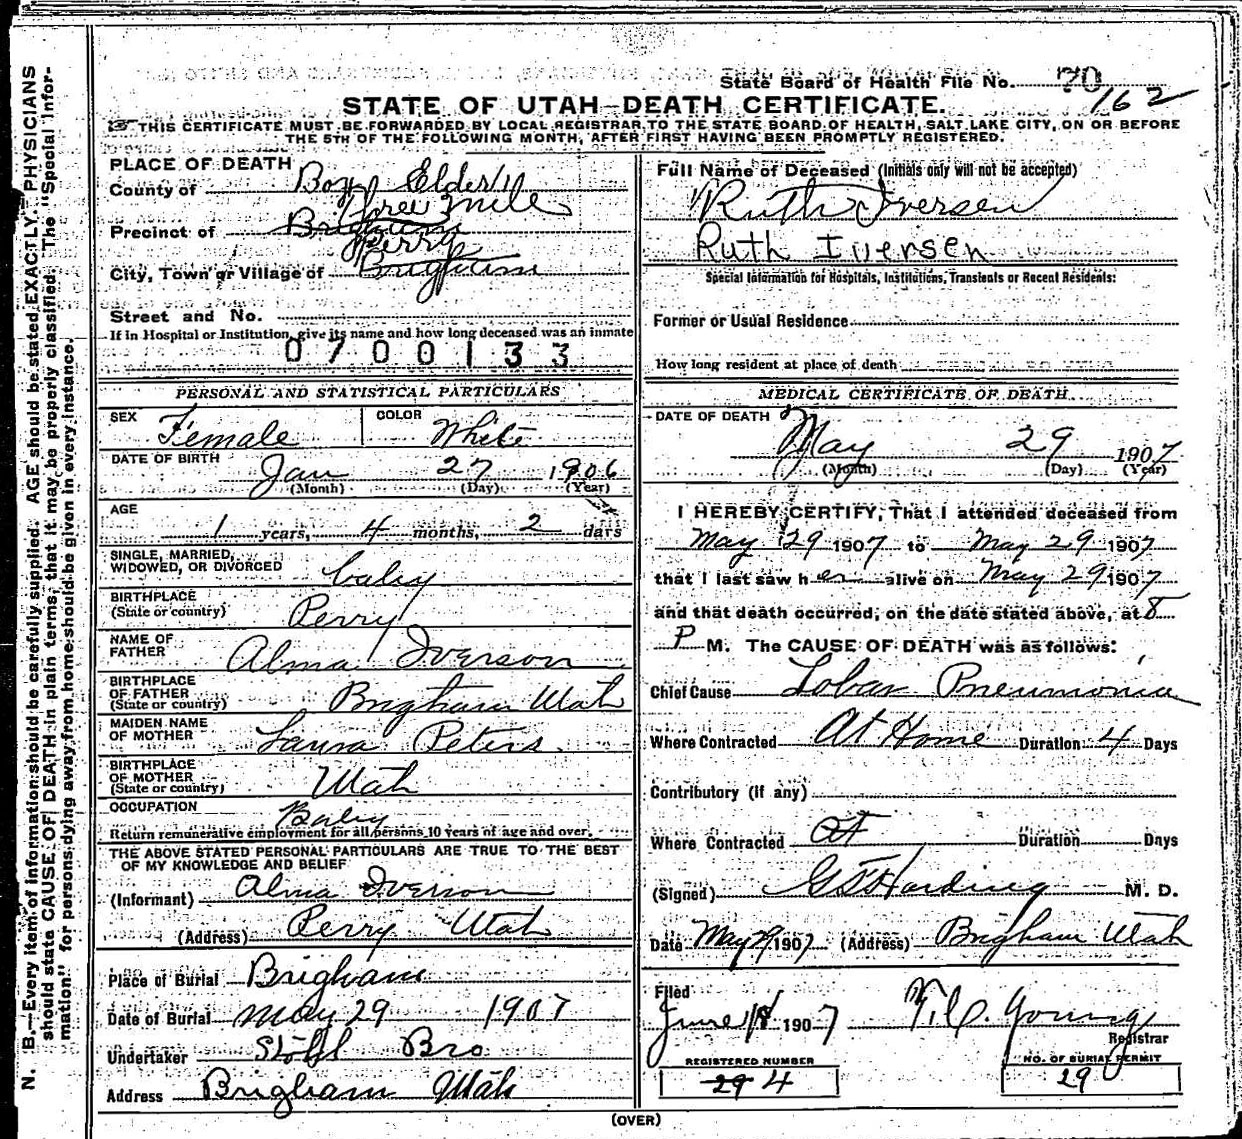 State Board of Health File No. 70
162
STATE OF UTAH—DEATH CERTIFICATE.
THIS CERTIFICATE MUST BE FORWARDED BY LOCAL REGISTRAR TO THE STATE BOARD OF HEALTH, SALT LAKE CITY, ON OR BEFORE
THE 5TH OF THE FOLLOWING MONTH, AFTER FIRST HAVING BEEN PROMPTLY REGISTERED.
N. B.—Every item of information should be carefully supplied. AGE should be stated EXACTLY. PHYSICIANS
should state CAUSE OF DEATH in plain terms, that it may be properly classified. The "Special Infor-
mation" for persons dying away from home should be given in every instance.
PLACE OF DEATH
County of Box Elder
Three Mile
Precinct of Brigham
Perry
City, Town or Village of Brigham
Street and No.
If in Hospital or Institution, give its name and how long deceased was an inmate
0700133
PERSONAL AND STATISTICAL PARTICULARS
SEX Female COLOR White
DATE OF BIRTH Jan 27 1906
(Month) (Day) (Year)
AGE
1 years, 4 months, 2 days
SINGLE, MARRIED,
WIDOWED, OR DIVORCED baby
BIRTHPLACE
(State or country) Perry
NAME OF
FATHER Alma Iverson
BIRTHPLACE
OF FATHER
(State or country) Brigham Utah
MAIDEN NAME
OF MOTHER Laura Peters
BIRTHPLACE
OF MOTHER
(State or country) Utah
OCCUPATION Baby
Return remunerative employment for all persons 10 years of age and over.
THE ABOVE STATED PERSONAL PARTICULARS ARE TRUE TO THE BEST
OF MY KNOWLEDGE AND BELIEF
(Informant) Alma Iverson
(Address) Perry Utah
Place of Burial Brigham
Date of Burial May 29 1907
Undertaker Stohl Bro
Address Brigham Utah
Full Name of Deceased (Initials only will not be accepted)
Ruth Iversen
Ruth Iversen
Special Information for Hospitals, Institutions, Transients or Recent Residents:
Former or Usual Residence
How long resident at place of death
MEDICAL CERTIFICATE OF DEATH
DATE OF DEATH
May 29 1907
(Month) (Day) (Year)
I HEREBY CERTIFY, That I attended deceased from
May 29 1907 to May 29 1907
that I last saw her alive on May 29 1907
and that death occurred, on the date stated above, at 8
P M. The CAUSE OF DEATH was as follows:
Chief Cause Lobar Pneumonia
Where Contracted At Home Duration 4 Days
Contributory (if any)
Where Contracted at Duration Days
(Signed) Harding M. D.
Date May 29 1907 (Address) Brigham Utah
Filed
June 1907 Young
Registrar
REGISTERED NUMBER NO. OF BURIAL PERMIT
29 4 29
(OVER)